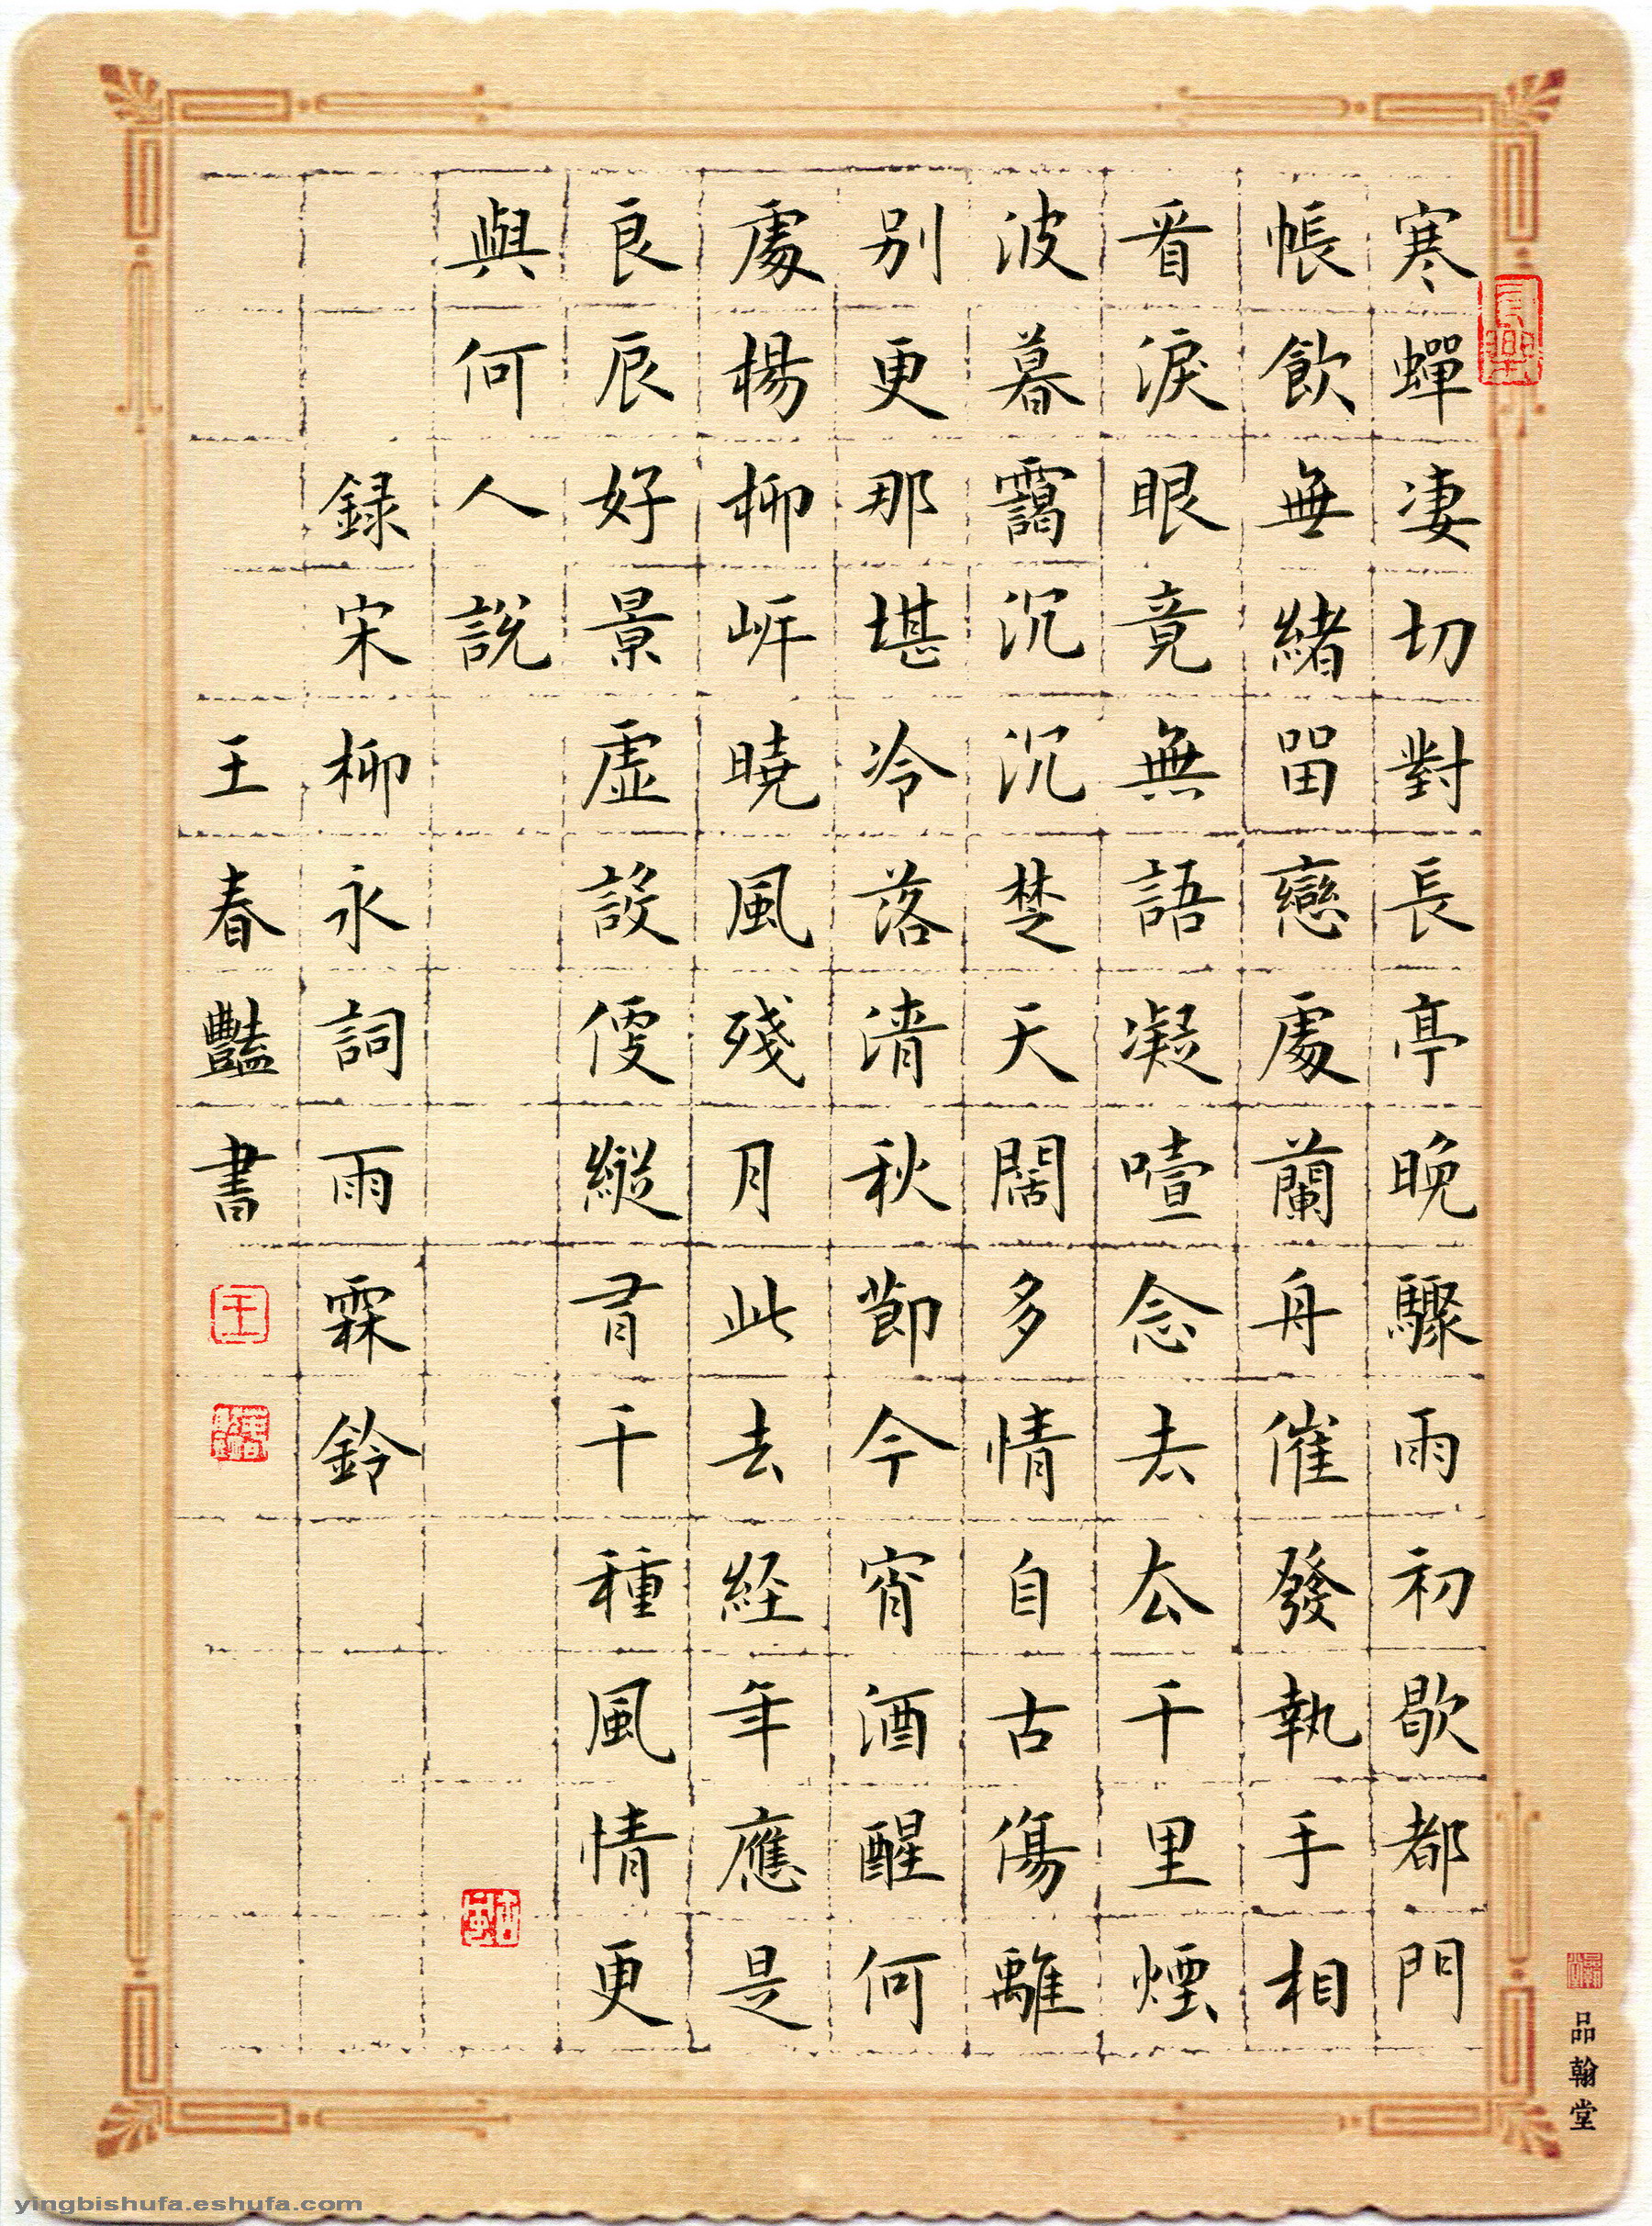 寒蟬凄切對長亭晚驟雨初歇都門
帳飲無緒留戀處蘭舟催發執手相
看淚眼竟無語凝噎念去去千里煙
波暮靄沉沉楚天闊多情自古傷離
别更那堪冷落清秋節今宵酒醒何
處楊柳岸曉風殘月此去經年應是
良辰好景虛設便縱有千種風情更
與何人說
録宋柳永詞雨霖鈴
王春豔書
王
品翰堂
yingbishufa.eshufa.com